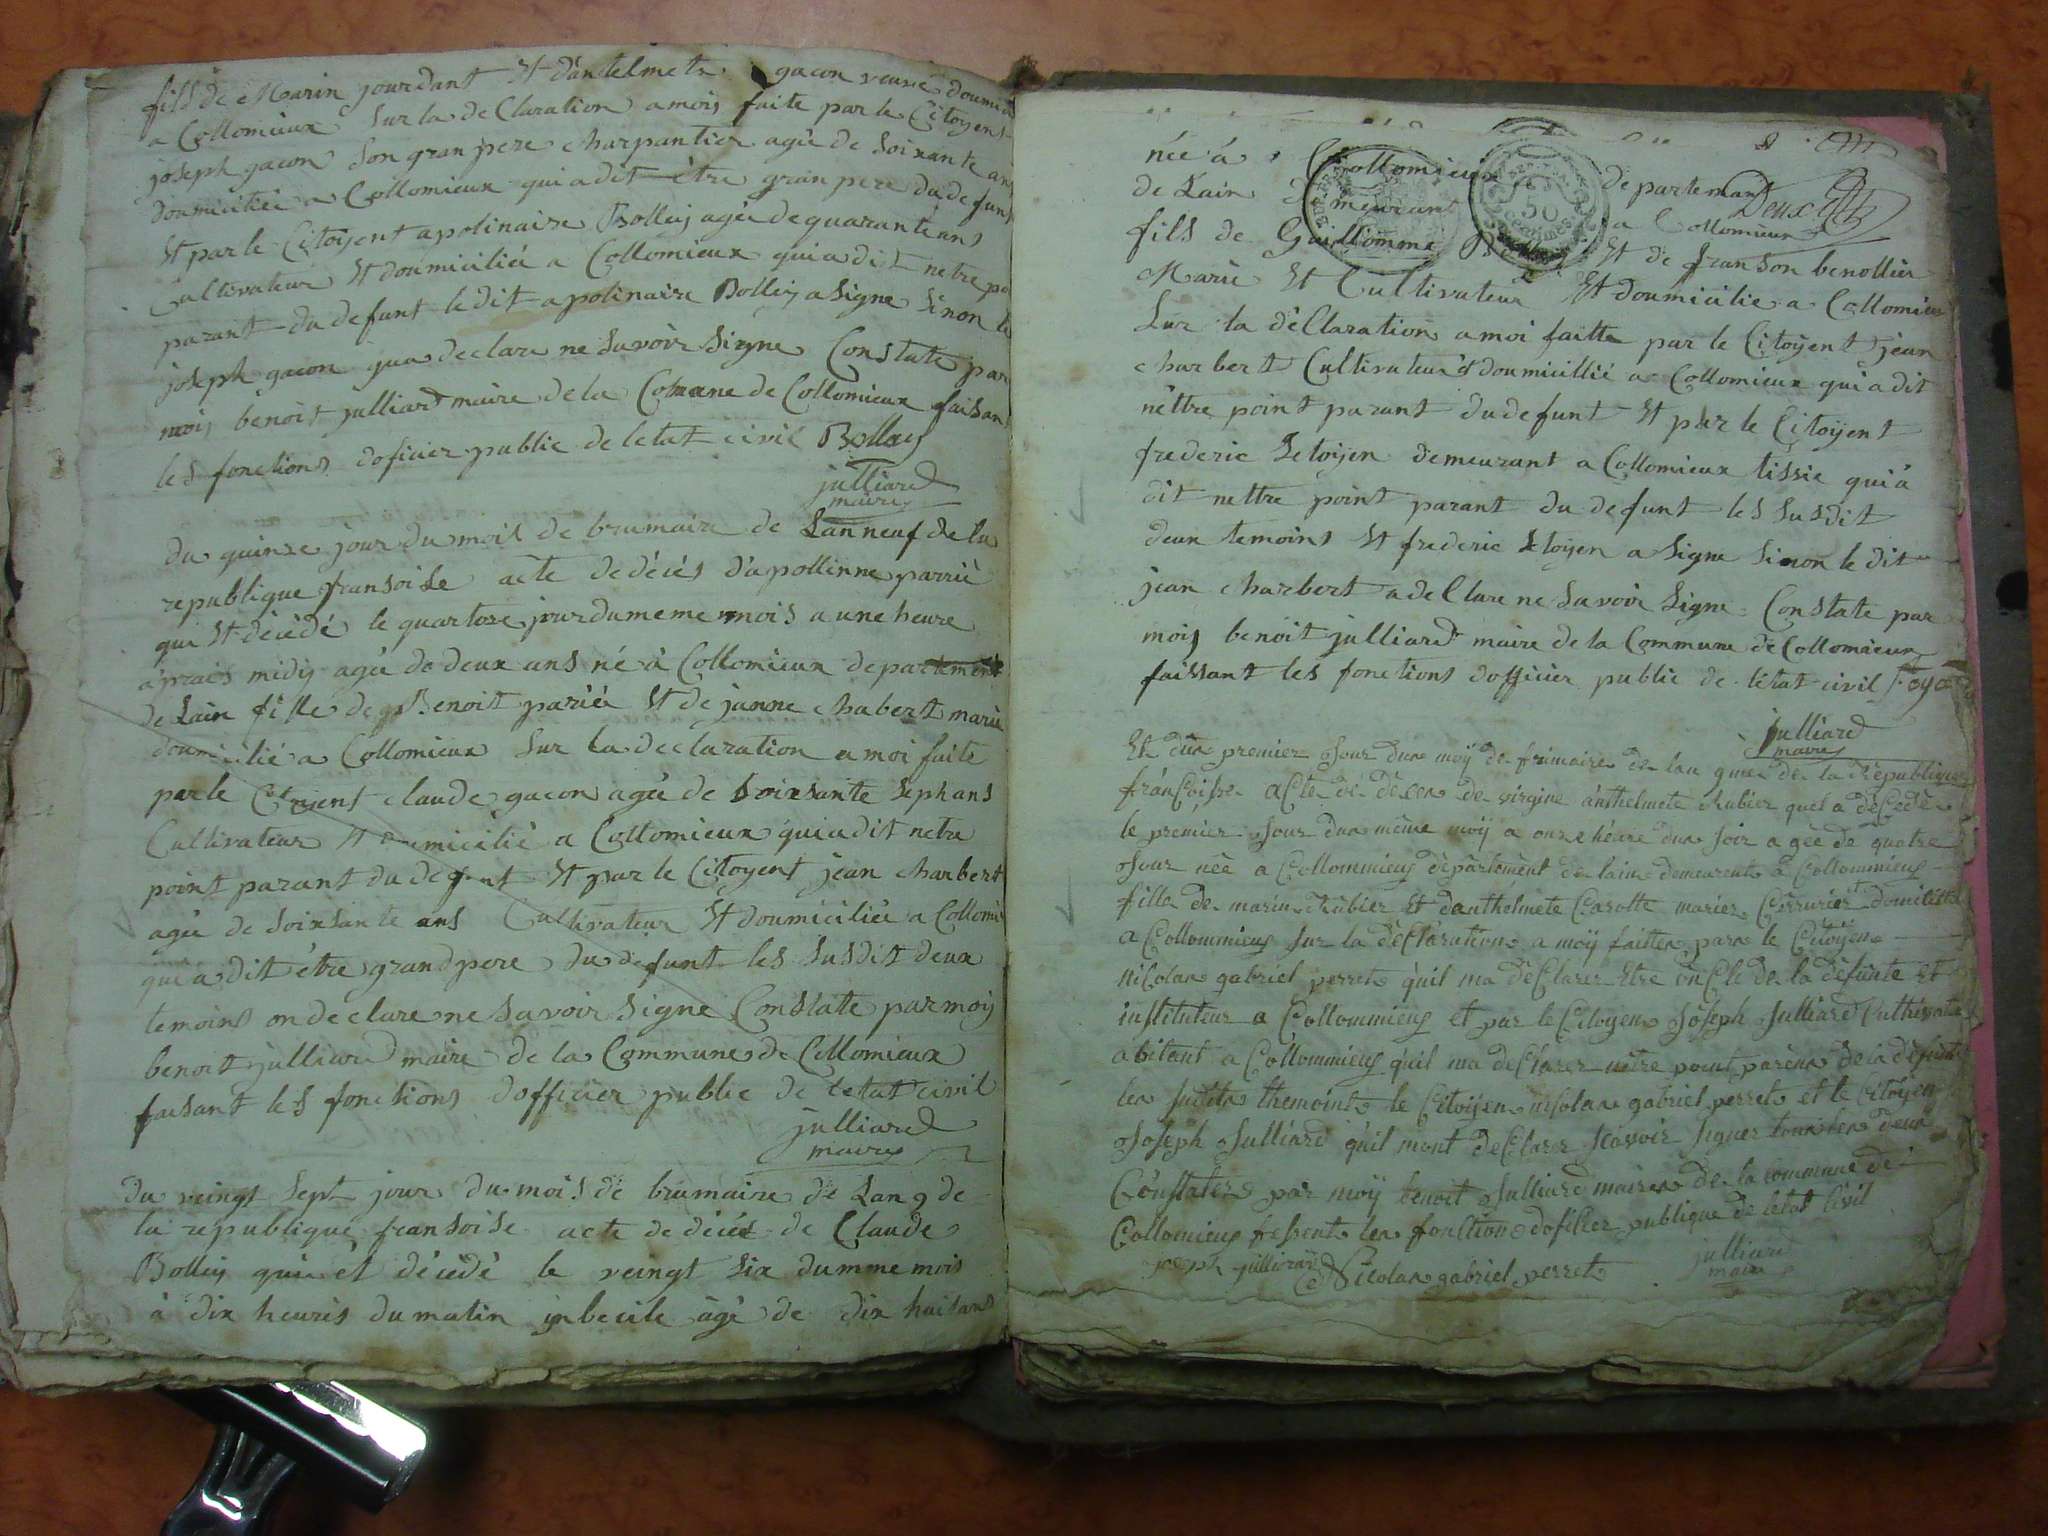 fils de Marin jourdant Et dantelmette gacon veuve doumici
a Collomieux Sur la deClaration a mois faite par le Citoyent
joseph gacon Son gran pere charpantier agée de Soixante ans
doumiciliée a Collomieux qui a dit être gran pere du defunt
Et par le Citoyent apolinaire Bolley agée de quarante ans
Cultivateur Et doumiciliée a Collomieux qui a dit netre po
parant du defunt le dit apolinaire Bolley a Signe Sinon le
joseph gacon qua declare ne Savoir Signe Constate par
mois benoit julliard maire de la Comune de Collomieux faisant
les fonctions doficier public de letat civil Bolley
julliard
maire
du quinze jour du mois de brumaire de Lan neuf de la
republique fransoise acte de décés d'apollinne parrié
qui Et décédé le quartorze jour du meme mois a une heure
aprais midy agée de deux ans né à Collomieux departement
de Lain fille de Benoit pariée Et de janne chabert marié
doumicilié a Collomieux Sur la declaration a moi faite
par le Citoyent claude gacon agée de Soixsante Seph ans
Cultivateur Et doumicilié a Collomieux qui a dit netre
point parant du defunt Et par le Citoyent jean charbert
agée de Soixsante ans Cultivateur Et doumiciliée a Collomi
qui a dit être grand pere du defunt les Susdit deux
temoins on declare ne Savoir Signe Constate par moy
benoit julliard maire de la Commune de Collomieux
faisant les fonctions dofficier public de letat civil
julliard
maire
du veingt Sept jour du mois de brumaire de Lan 9 de
la republique fransoise acte de décés de Claude
Bolley qui ét décédé le veingt Six du mme mois
à dix heuris du matin inbecile agé de dix huit ans
née à Collomieux departemant
Deux
50 centimes
de Lain demeurant a Collomieux
fils de Guillomme Bolley Et de franson benollier
Marié Et Cultivateur Et doumicilie a Collomieux
Sur la déClaration a moi faitte par le Citoyent jean
charbert Cultivateur Et doumicillié a Collomieux qui a dit
néttre point parant du defunt Et par le Citoyent
frederic Letoyen demeurant a Collomieux tissie qui a
dit nettre point parant du defunt les Susdit
deux temoins Et frederic Letoyen a Signe Sinon le dit
jean charbert a deClare ne Savoir Signe Constate par
mois benoit julliard maire de la Commune de Collomieux
faissant les fonctions dofficier public de létat civil
julliard
maire
Et du premier Jour du moÿ de frimaire de lan de la République
françoise acte dé décen de virgine anthelmete Rubier quel a déCedé
le premier Jour du même moÿ a onze héure du Soir agée de quatre
Jour née a Collommieux département de lain demeurent a Collommieux
fille de marin Rubier Et danthélmete Carotte marier domicilié
a Collommieux Sur la déClaration a moÿ faitte par le Citoÿen
nicolas gabriel perret quil ma déClarer Etre onCle de la défunte Et
instituteur a Collommieux et par le Citoyen Joseph Julliard Culthivateur
abitant a Collommieux quil ma déClarer nêtre point parent de la défunte
les Sudits themoints le Citoÿen nicolas gabriel perret et le Citoÿen
Joseph Julliard quil mont déClarer Scavoir Signer tous les deux
Constater par moÿ benoit Julliard maire de la commune de
Collommieux les fonctions doficier publique de létat Civil
joseph julliard Nicolas gabriel perret julliard
maire